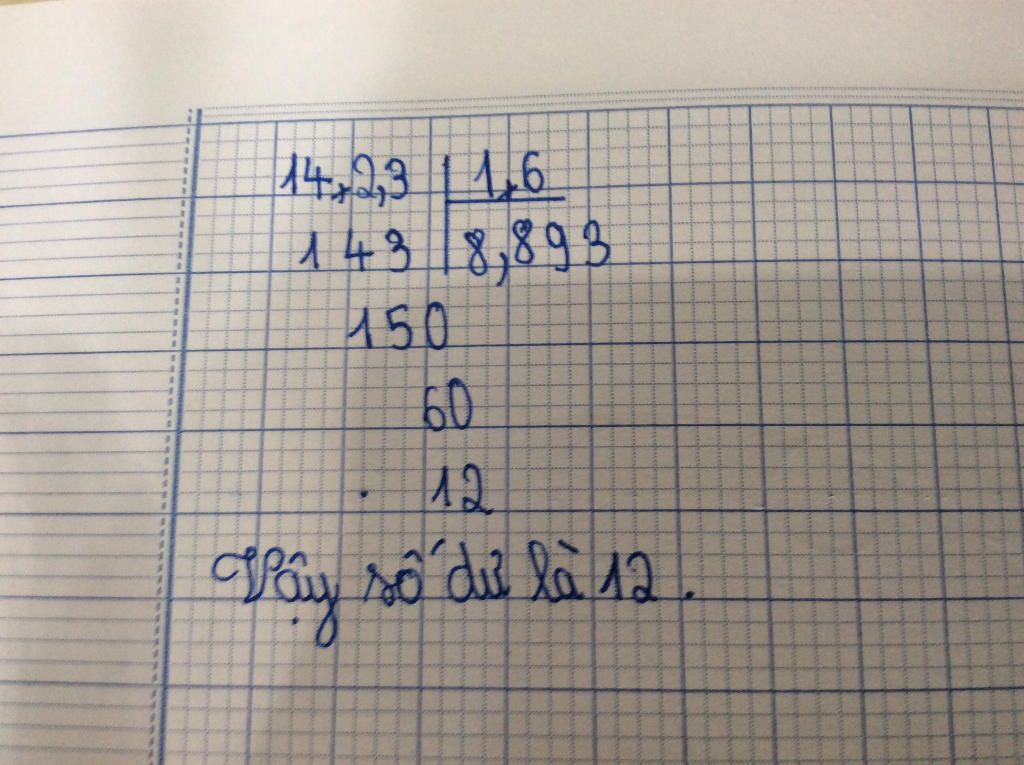 14,2,3 1,6
143 8,893
150
60
12
Vậy số dư là 12.